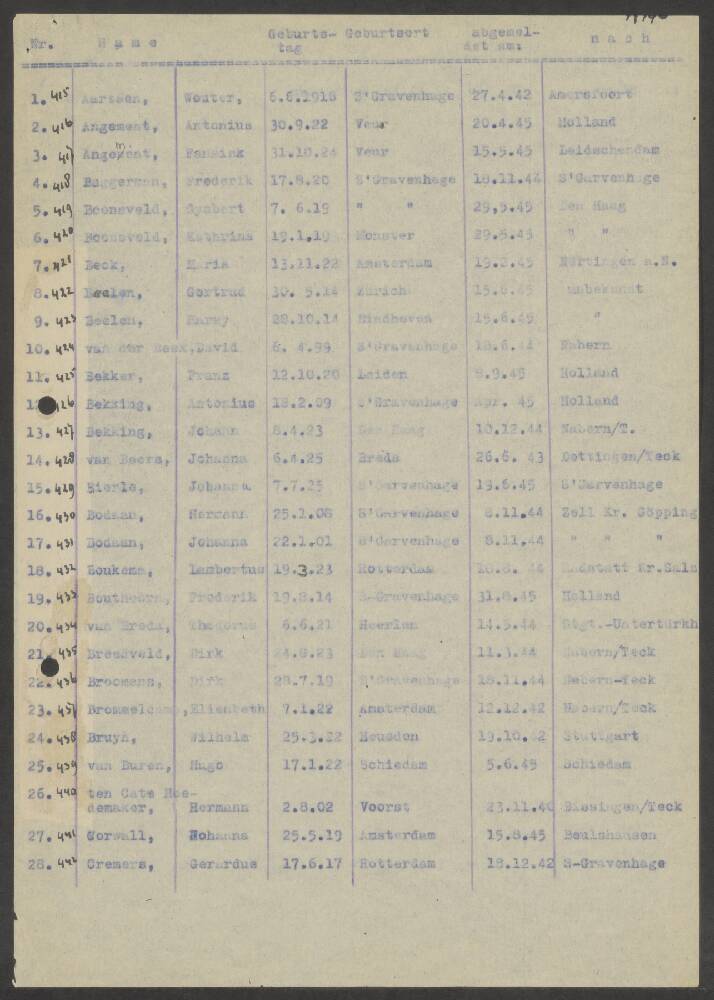 Nr. Name Geburts- Geburtsort abgemel- nach
tag det am:
1. 415 Aarssen, Wouter, 6.6.1918 S'Gravenhage 27.4.42 Amersfoort
2. 416 Angement, Antonius 30.9.22 Veur 20.4.45 Holland
3. 417 Angement, 31.10.24 Veur 15.5.45 Leidschendam
4. 418 Baggerman, Frederik 17.8.20 S'Gravenhage 18.11.44
5. 419 7. 6.19 " " 29.5.45 Den Haag
6. 420 Kathrina 19.1.19 Monster 29.5.45 " "
7. 421 Beck, Maria 13.11.22 Amsterdam 19.2.45 Nürtingen a.N.
8. 422 Beelen, Gertrud 30. 5.14 Zürich 15.6.45 unbekannt
9. 423 Beelen, Harry 28.10.14 Eindhoven 15.6.45 "
10. 424 van der Beek, David 6. 4.99 S'Gravenhage Nabern
11. 425 Bekker, Franz 12.10.20 Leiden 8.9.45 Holland
426 Bekking, Antonius 18.2.09 S'Gravenhage Apr. 45 Holland
13. 427 Bekking, Johann 8.4.23 Den Haag 10.12.44 Nabern/T.
14. 428 van Beers, Johanna 6.4.25 Breda 26.6. 43 Oettingen/Teck
15. 429 Bierle, Johanna 7.7.25 S'Garvenhage 19.6.45 S'Garvenhage
16. 430 Bodaan, Hermann 25.1.08 S'Garvenhage 8.11.44 Zell Kr. Göpping
17. 431 Bodaan, Johanna 22.1.01 S'Garvenhage 8.11.44 " " "
18. 432 Boukema, Lambertus 19.3.23 Rotterdam
19. 433 Frederik 19.8.14 S-Gravenhage 31.8.45 Holland
20. 434 van Breda, Theodorus 6.6.21 Heerlen 14.5.44 Stgt.-Untertürkh
21. 435 Breesveld, Dirk 24.8.23 Den Haag 11.3.44 Nabern/Teck
22. 436 Broomans, Dirk 28.7.19 S'Gravenhage 18.11.44 Nabern-Teck
23. 437 Brommelcamp, Elisabeth 7.1.22 Amsterdam 12.12.42 Nabern/Teck
24. 438 Bruyn, Wilhelm 25.3.22 Heusden 19.10.42 Stuttgart
25. 439 van Buren, Hugo 17.1.22 Schiedam 5.6.45 Schiedam
26. 440 ten Cate Hoe-
demaker, Hermann 2.8.02 Voorst 23.11.40 Bissingen/Teck
27. 441 Corwall, Nohanna 25.5.19 Amsterdam 15.8.45 Beulshausen
28. 442 Cremers, Gerardus 17.6.17 Rotterdam 18.12.42 S-Gravenhage